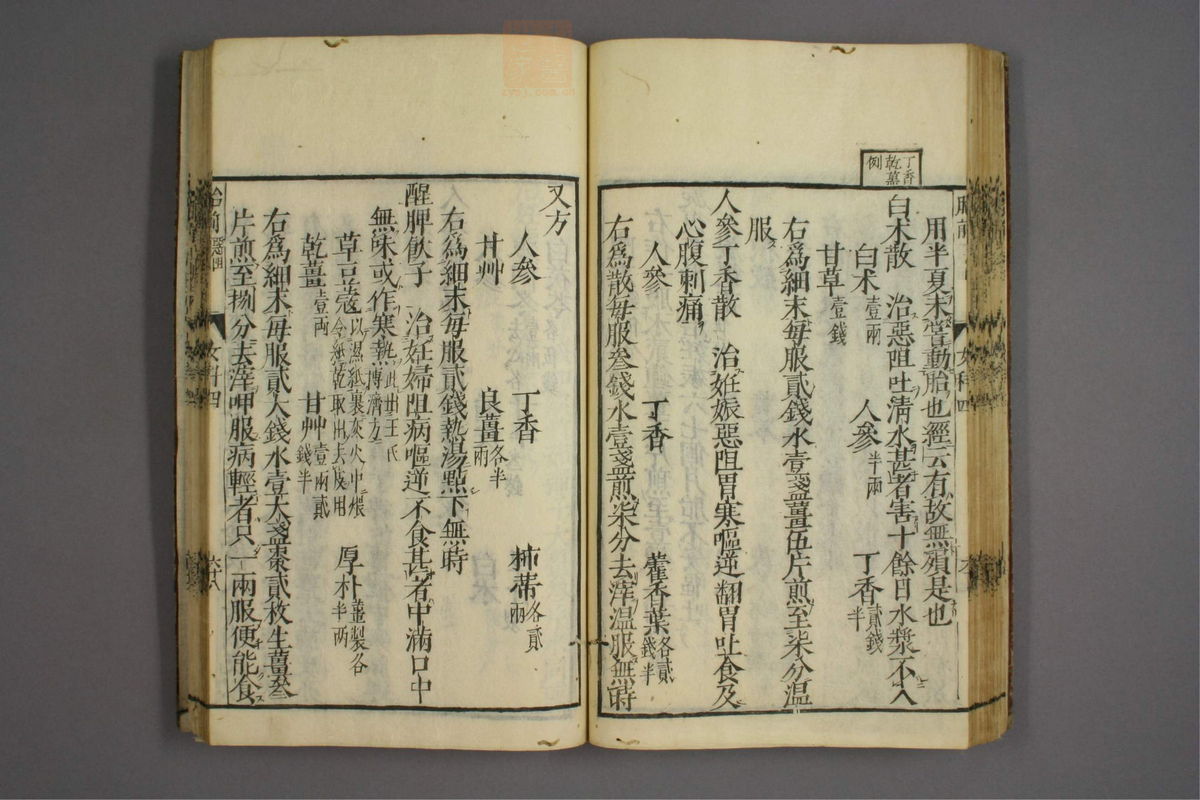 丁香
乾薑
例
用半夏末嘗動胎也經云有故無殞是也
白术散 治惡阻吐清水甚者害十餘日水漿不入
白术壹兩 人參半兩 丁香貳錢半
甘草壹錢
右爲細末每服貳錢水壹盞薑伍片煎至柒分溫
服
人參丁香散 治妊娠惡阻胃寒嘔逆翻胃吐食及
心腹刺痛
人參 丁香 藿香葉各貳錢半
右爲散每服叄錢水壹盞煎柒分去滓溫服無時
又方
人參 丁香 柿蒂各貳兩
甘艸 良薑各半兩
右爲細末每服貳錢熱湯點下無時
醒脾飲子 治妊婦阻病嘔逆不食甚者中滿口中
無味或作寒熱此出王氏博濟方
草豆蔻以濕紙裹灰火中煨令紙乾取出去皮用 厚朴薑製各半兩
乾薑壹兩 甘艸壹兩貳錢半
右爲細末每服貳大錢水壹大盞棗貳枚生薑叄
片煎至捌分去滓呷服病輕者只一兩服便能食